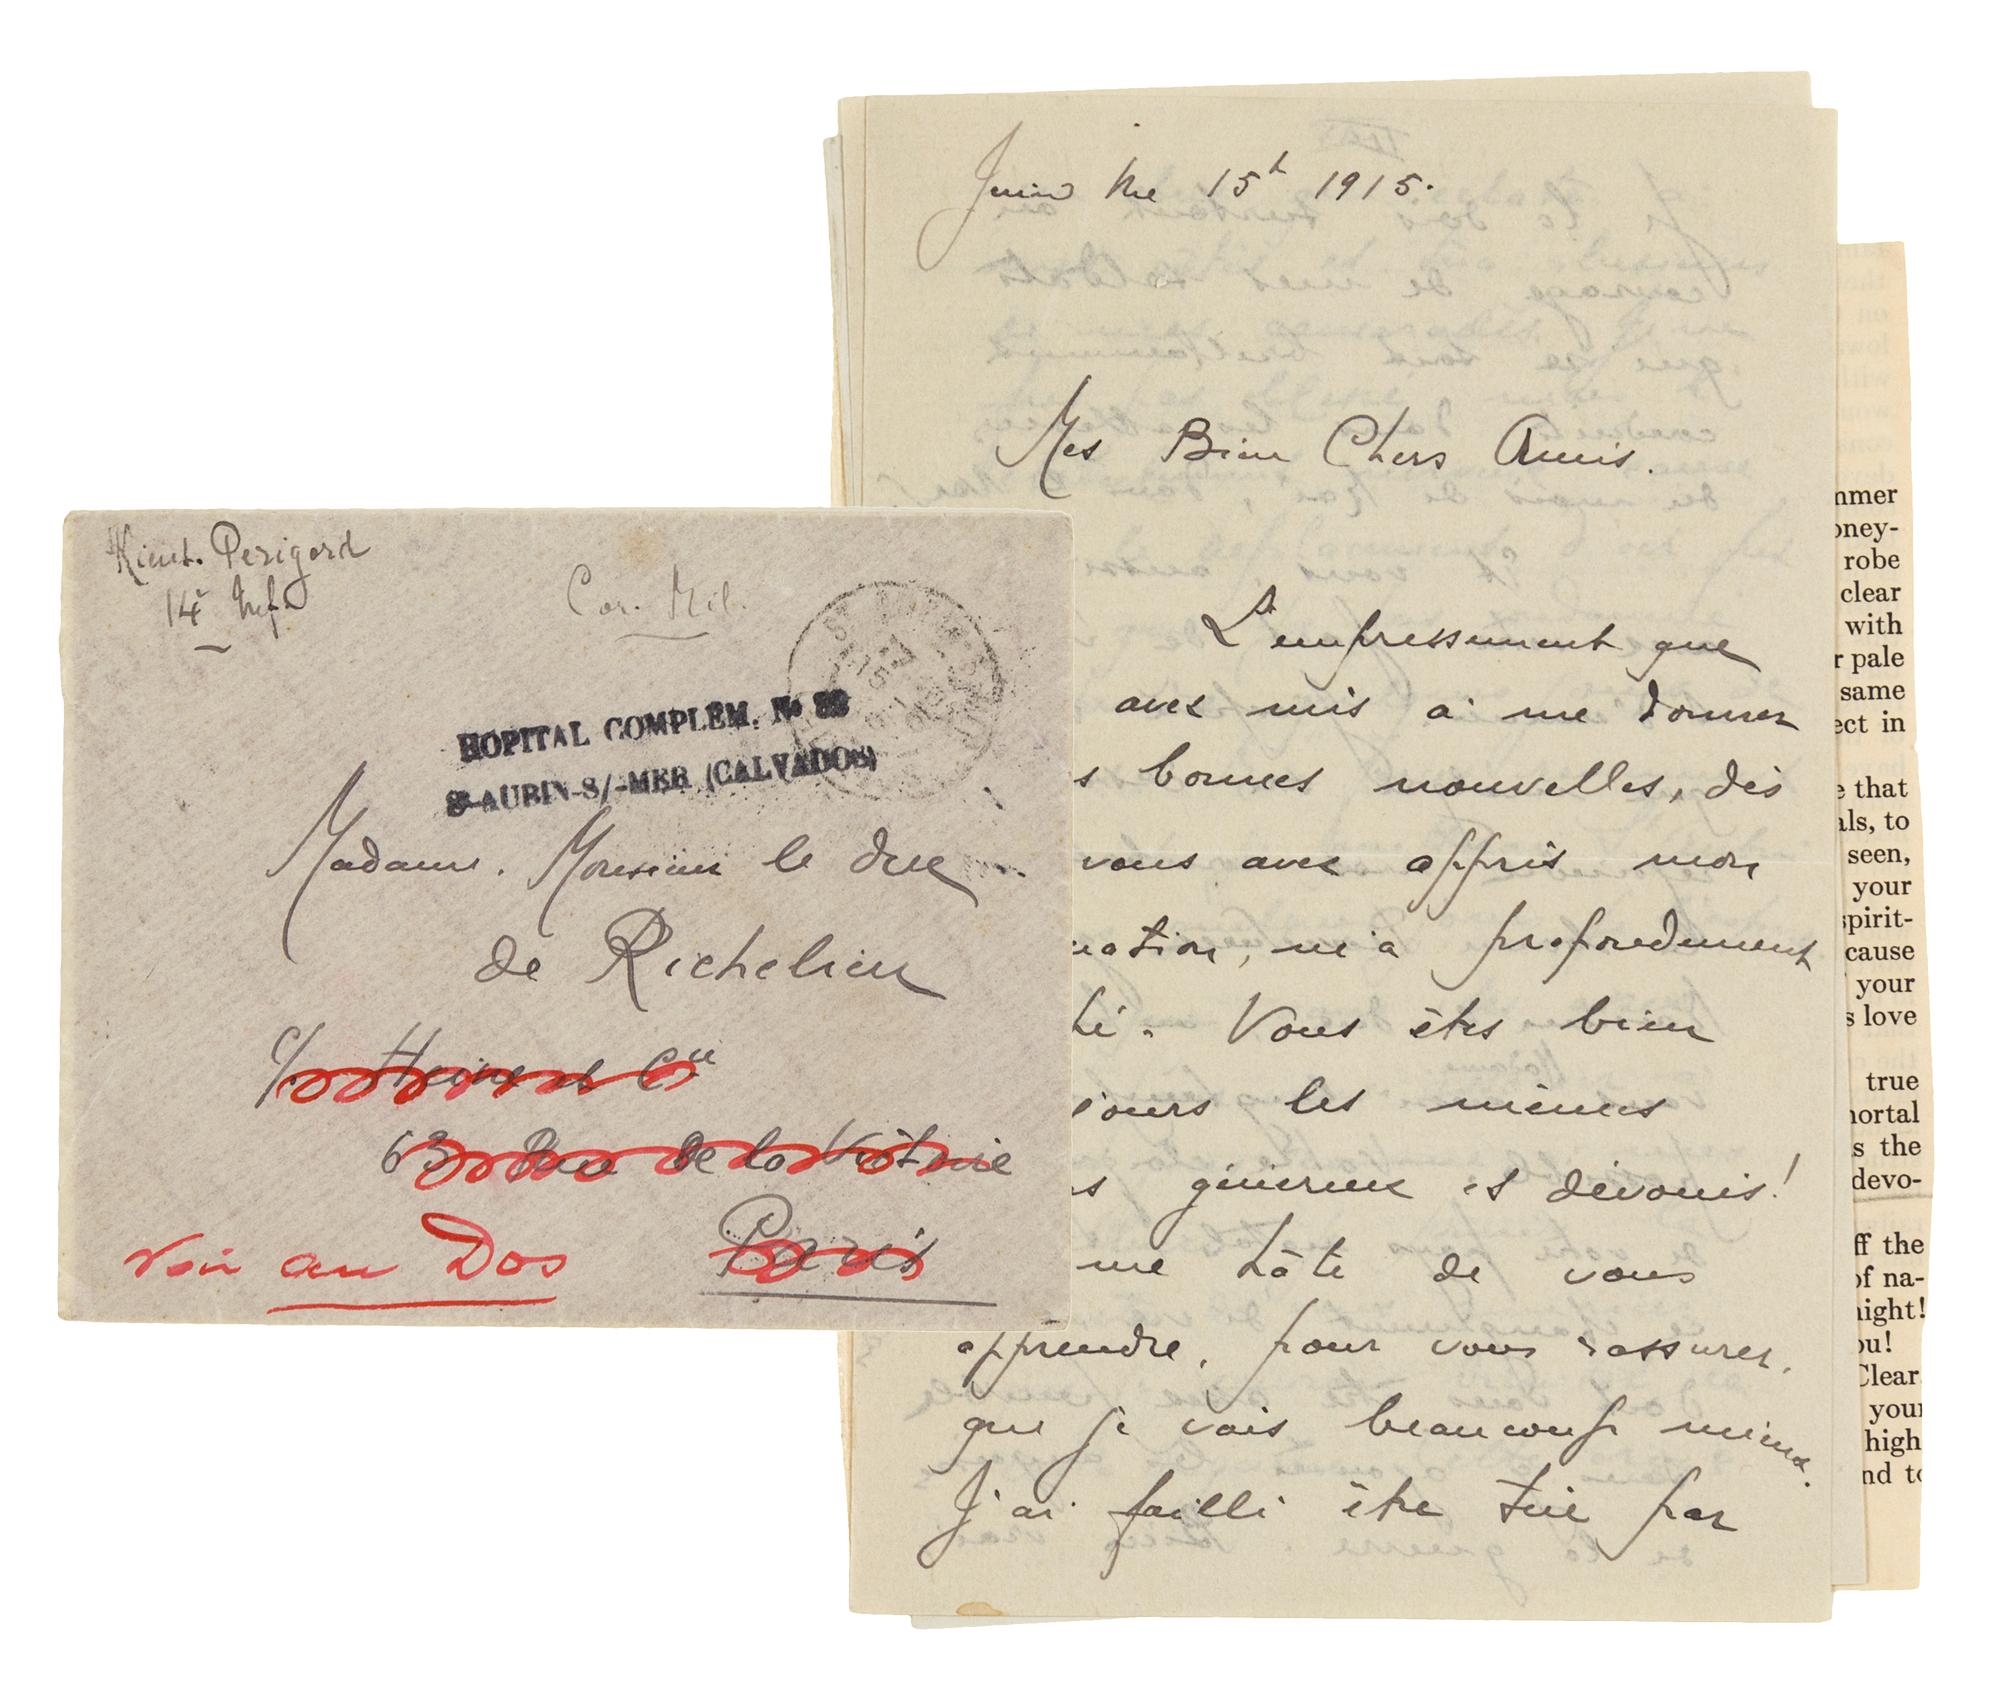 Lieut. Perigord
14e Inf.
Cor. Mil.
HOPITAL COMPLEM. No
St-AUBIN-S/-MER (CALVADOS)
Madame. Monsieur le duc
de Richelieu
c/ Heine et Cie
63 Rue de la Victoire
Paris
voir au Dos
Juin the 15th 1915.
Mes Bien Chers Amis.
L'empressement que
avez mis à me donner
s bonnes nouvelles, dès
vous avez appris mon
uation, m'a profondement
hé. Vous êtes bien
jours les mêmes
s généreux et dévoués!
me hâte de vous
apprendre, pour vous rassurer,
que je vais beaucoup mieux.
J'ai failli être tué par
mmer
oney-
robe
clear
with
r pale
same
ect in
e that
als, to
seen,
your
spirit-
cause
your
s love
true
mortal
s the
devo-
ff the
of na-
night!
ou!
Clear
your
high
nd to